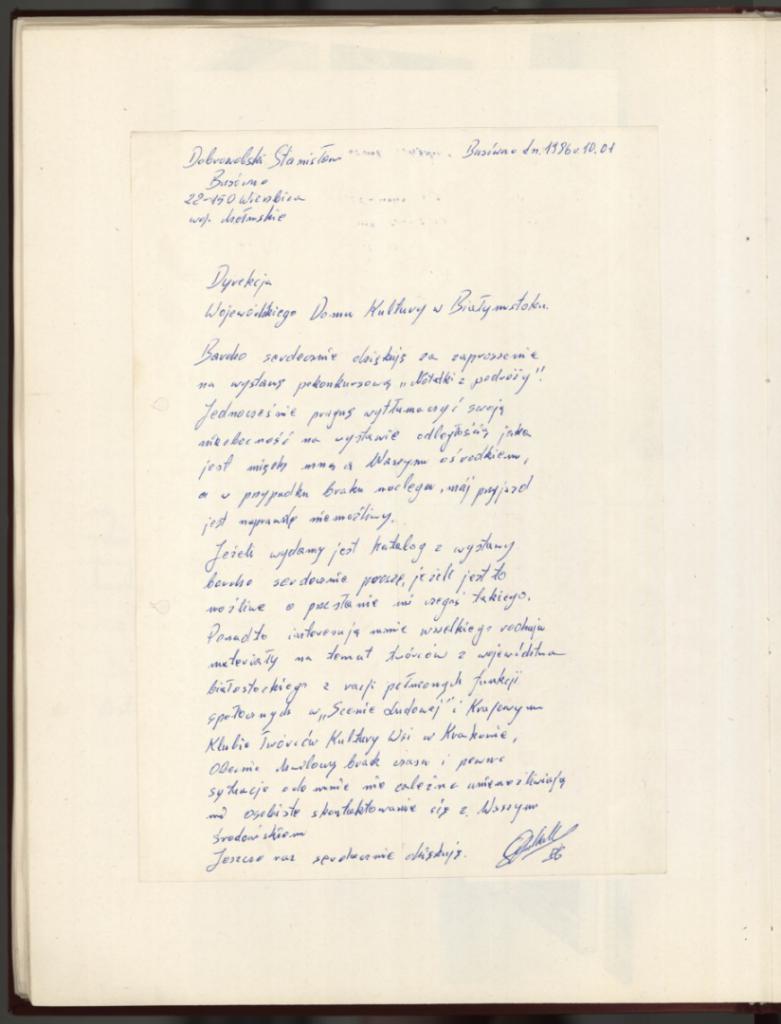 Dobrowolski Stanisław
Busówno dn. 1986.10.01
Busówno
22-150 Wierzbica
woj. chełmskie
Dyrekcja
Wojewódzkiego Domu Kultury w Białymstoku.
Bardzo serdecznie dziękuję za zaproszenie
na wystawę pokonkursową "Notatki z podróży".
Jednocześnie pragnę wytłumaczyć swoją
nieobecność na wystawie odległością, jaka
jest między mną a Waszym ośrodkiem,
a w przypadku braku noclegu, mój przyjazd
jest naprawdę niemożliwy.
Jeżeli wydany jest katalog z wystawy
bardzo serdecznie proszę, jeżeli jest to
możliwe o przesłanie mi czegoś takiego.
Ponadto interesują mnie wszelkiego rodzaju
materiały na temat twórców z województwa
białostockiego z racji pełnionych funkcji
społecznych w "Scenie Ludowej" i Krajowym
Klubie Twórców Kultury Wsi w Krakowie,
Obecnie chwilowy brak czasu i pewne
sytuacje ode mnie nie zależne uniemożliwiają
mi osobiste skontaktowanie się z Waszym
środowiskiem
Jeszcze raz serdecznie dziękuję.